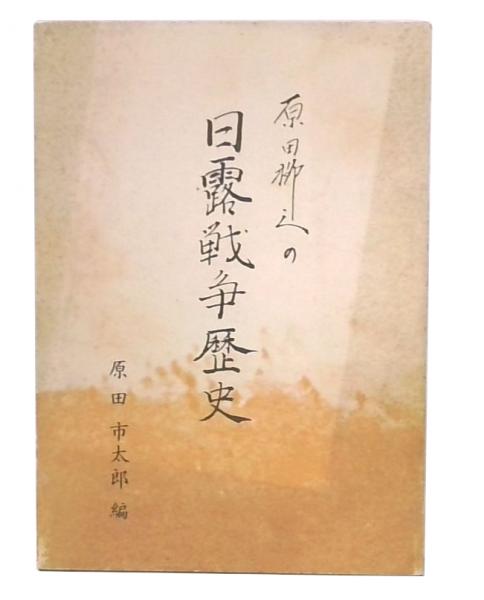 原田柳之の
日露戦争歴史
原田市太郎編